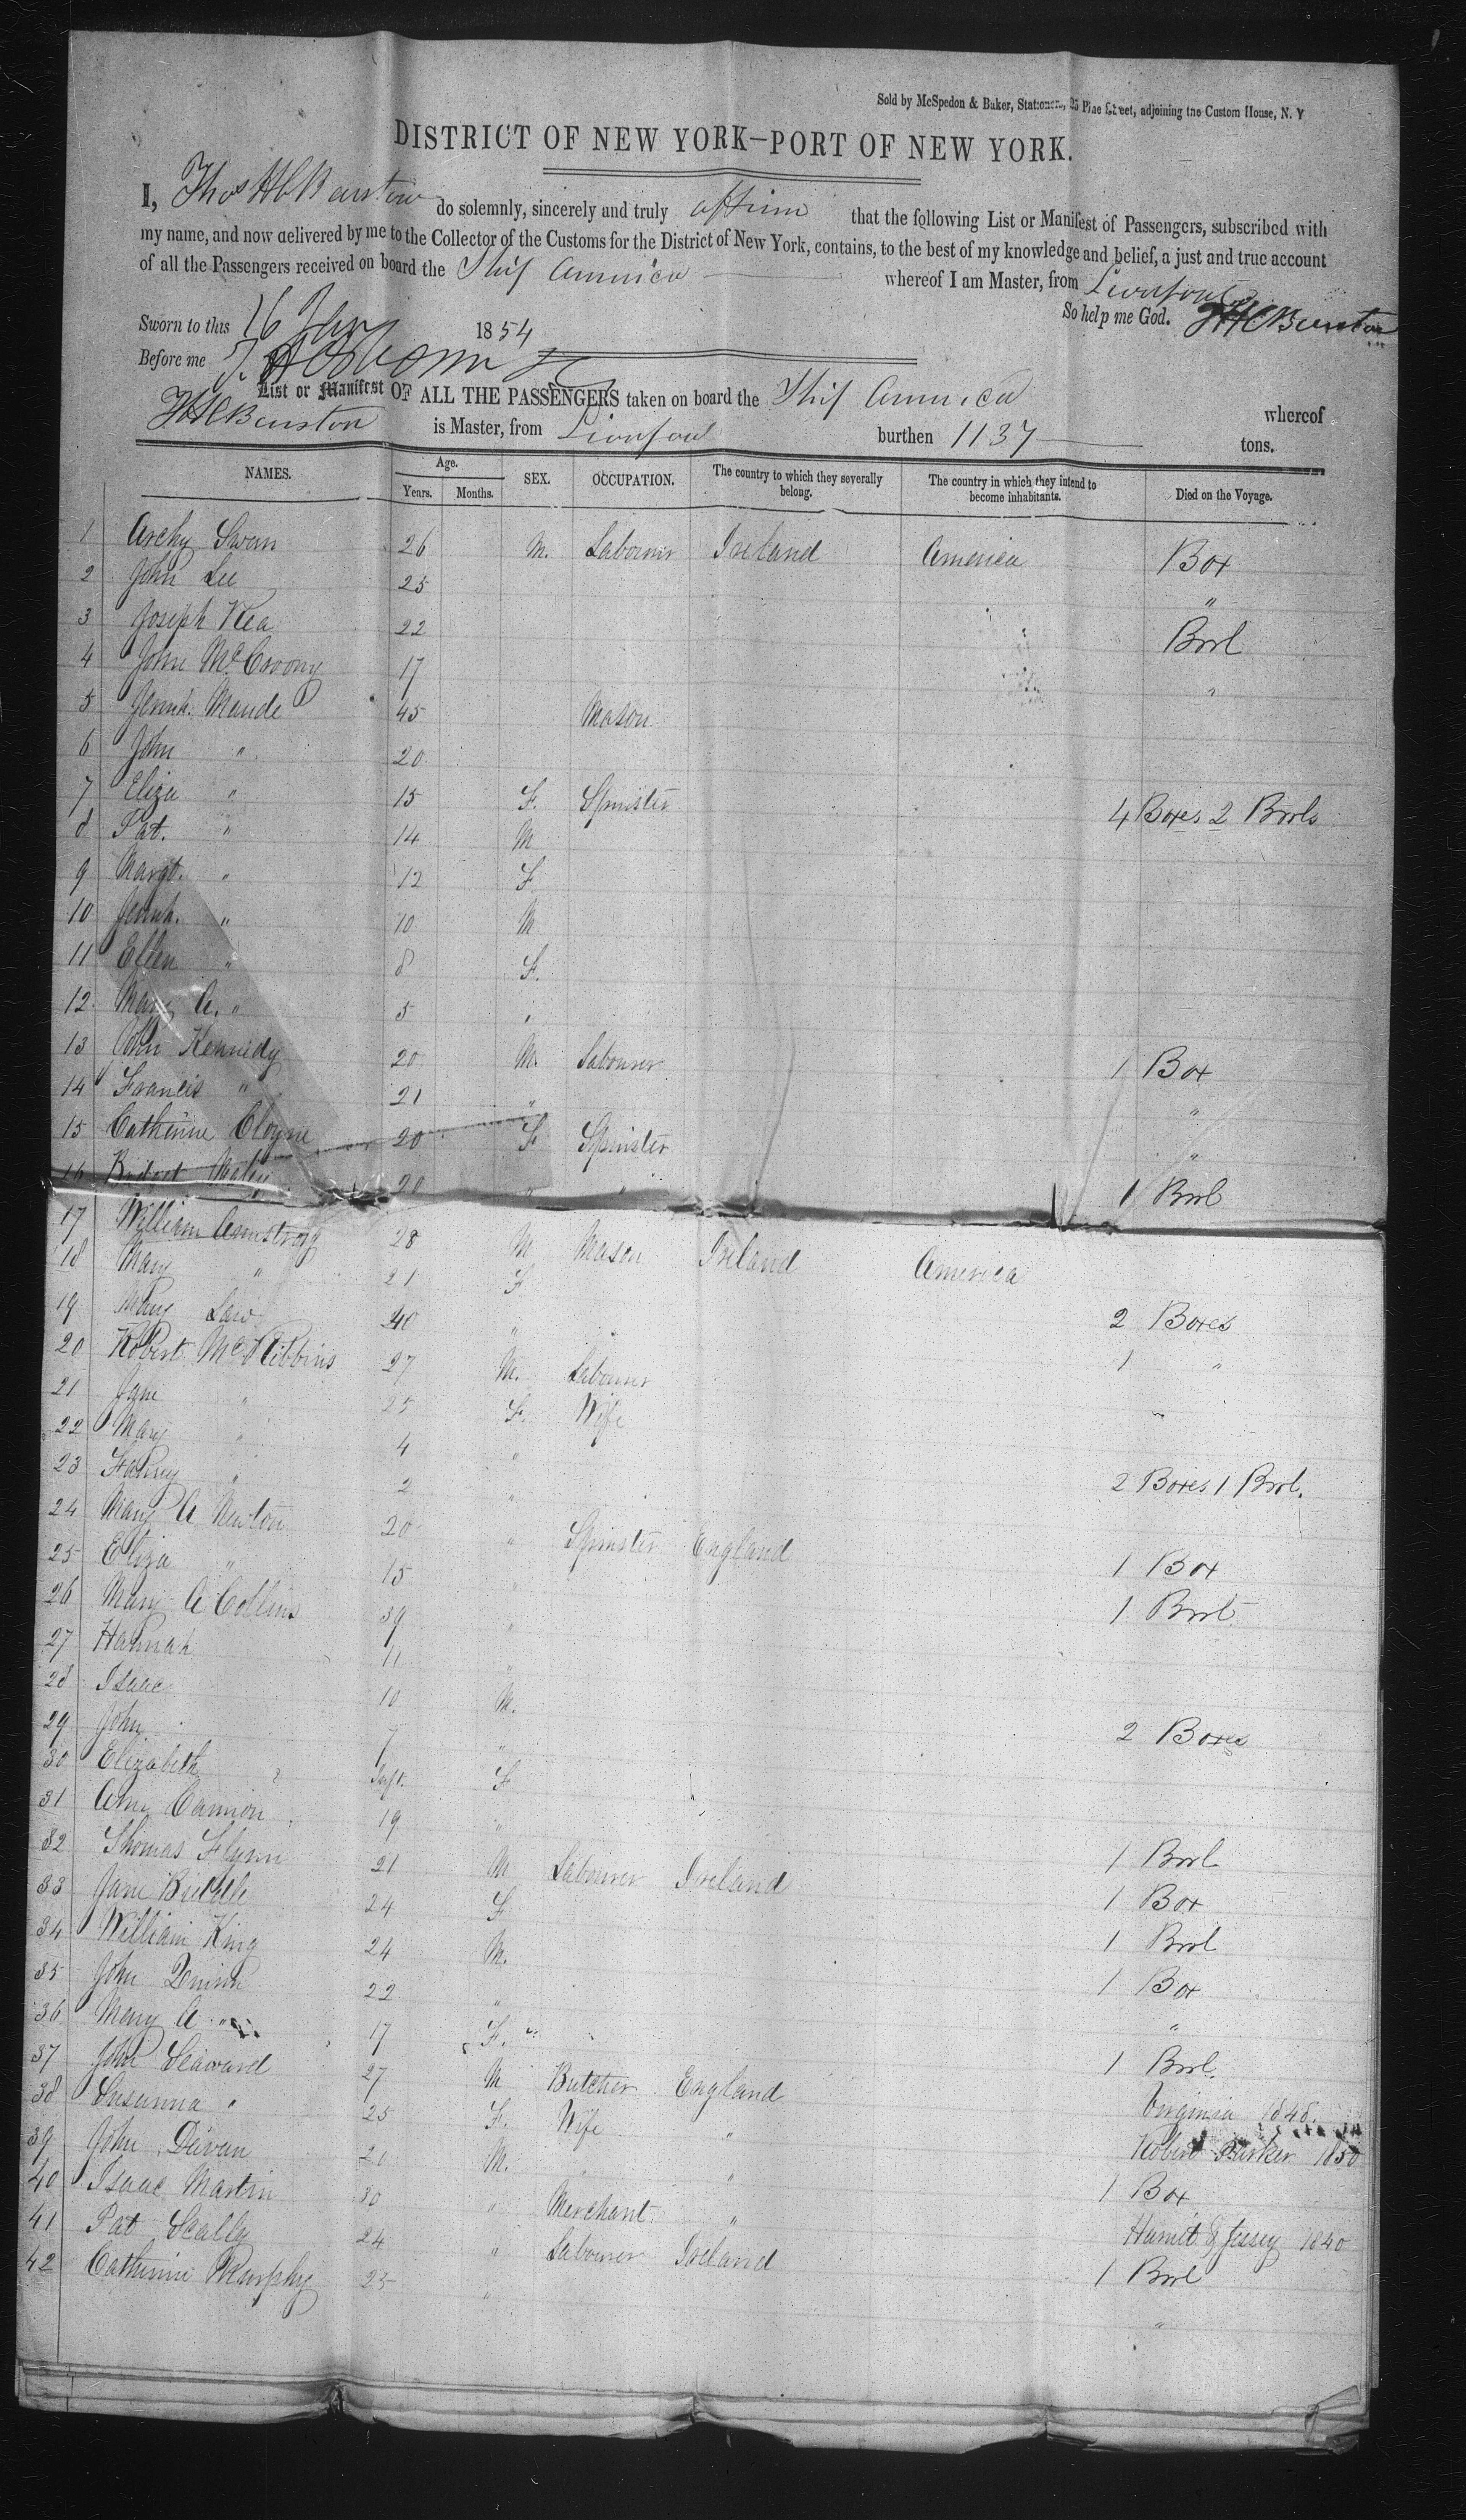 Sold by McSpedon & Baker, Stationers, 25 Pine Street, adjoining the Custom House, N. Y
DISTRICT OF NEW YORK—PORT OF NEW YORK.
I, Thos H C do solemnly, sincerely and truly affirm that the following List or Manifest of Passengers, subscribed with
my name, and now delivered by me to the Collector of the Customs for the District of New York, contains, to the best of my knowledge and belief, a just and true account
of all the Passengers received on board the Ship America whereof I am Master, from Liverpool
So help me God.
Sworn to this 16 Jany 1854
Before me
List or Manifest OF ALL THE PASSENGERS taken on board the Ship America whereof
is Master, from Liverpool burthen 1137 tons.
NAMES. Age. Years. Months. SEX. OCCUPATION. The country to which they severally belong. The country in which they intend to become inhabitants. Died on the Voyage.
1 Archy Swan 26 M. Labourer Ireland America Box
2 John Lee 25 "
3 Joseph Rea 22 Brrl
4 John 17 "
5 Jermh. Maude 45 Mason
6 John " 20
7 Eliza " 15 F. Spinster 4 Boxes 2 Brrls
8 Pat. " 14 M
9 Margt. " 12 F
10 Jermh. " 10 M
11 Ellen " 8 F.
12 Mary A. " 5 "
13 John Kennedy 20 M. Labourer 1 Box
14 Francis " 21 " "
15 Catherine Cloyne 20 F Spinster "
16 Bridget 20 " " 1 Brrl
17 William Armstrong 28 M Mason Ireland America
18 Mary " 21 F
19 Mary Law 40 " 2 Boxes
20 Robert McKibbins 27 M. Labourer 1 "
21 Jane " 25 F. Wife
22 Mary " 4 "
23 Fanny " 2 " 2 Boxes 1 Brrl.
24 Mary A Newton 20 " Spinster England
25 Eliza " 15 " 1 Box
26 Mary A Collins 39 " 1 Brrl
27 Hannah 11 "
28 Isaac 10 M.
29 John 7 " 2 Boxes
30 Elizabeth " Inft. F
31 Ann Cannion 19 "
32 Thomas Flynn 21 M Labourer Ireland 1 Brrl
33 Jane 24 F 1 Box
34 William King 24 M. 1 Brrl
35 John Quinn 22 " 1 Box
36 Mary A " 17 F. "
37 John Seaward 27 M Butcher England 1 Brrl.
38 Susanna " 25 F. Wife " Virginia 1848.
39 John 20 M. " Robert Parker 1850
40 Isaac Martin 30 " Merchant " 1 Box
41 Pat Scally 24 " Labourer Ireland & Jessey 1840
42 Catherine Murphy 25 " 1 Brrl
"